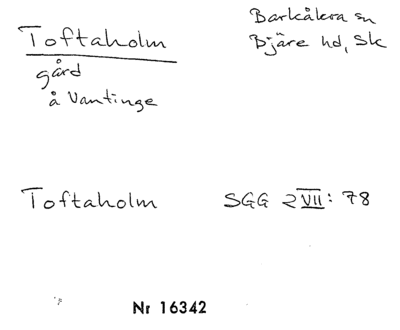 Toftaholm
gård
å Vantinge
Barkåkra sn
Bjäre hd, Sk
Toftaholm SGG 2 VII: 78
Nr 16342